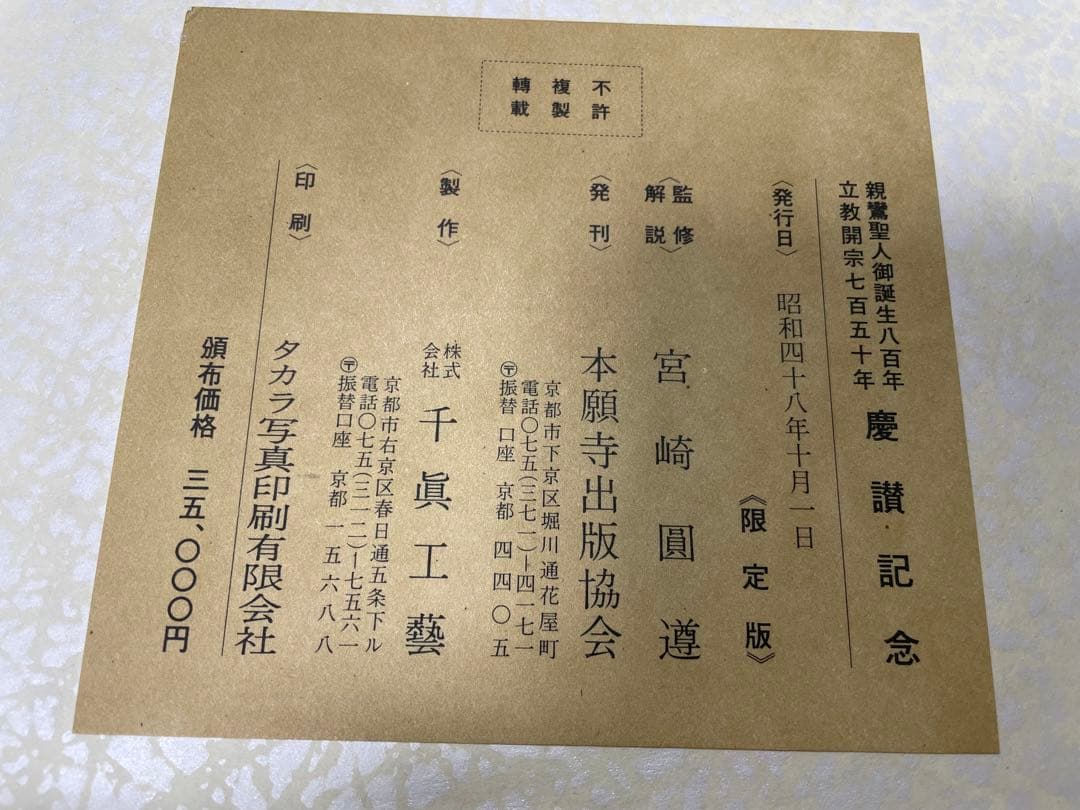 不許
複製
轉載
親鸞聖人御誕生八百年
立教開宗七百五十年
慶讃記念
《限定版》
〈発行日〉 昭和四十八年十月一日
〈監修
解説〉
宮崎圓遵
〈発刊〉 本願寺出版協会
京都市下京区堀川通花屋町
電話〇七五(三七一)ー四一七一
〒振替口座 京都四四〇五
〈製作〉 株式会社 千眞工藝
京都市右京区春日通五条下ル
電話〇七五(三一二)ー七五六一
〒振替口座 京都一五六八八
〈印刷〉 タカラ写真印刷有限会社
頒布価格 三五、〇〇〇円